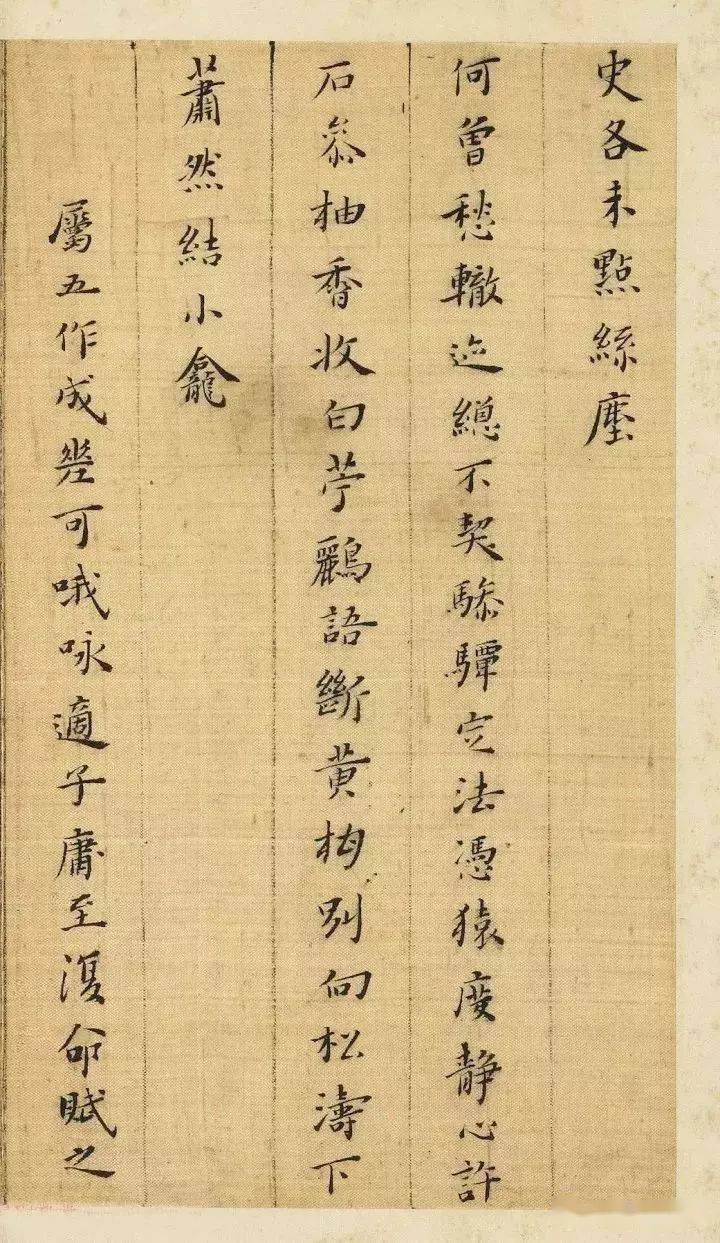 史各未點絲塵
何曾愁轍迹總不契驂驔定法憑猿度靜心許
石叅柚香收白苧鸝語斷黃梅別向松濤下
蕭然結小龕
屬五作成㘴可哦咏適子庸至復命賦之